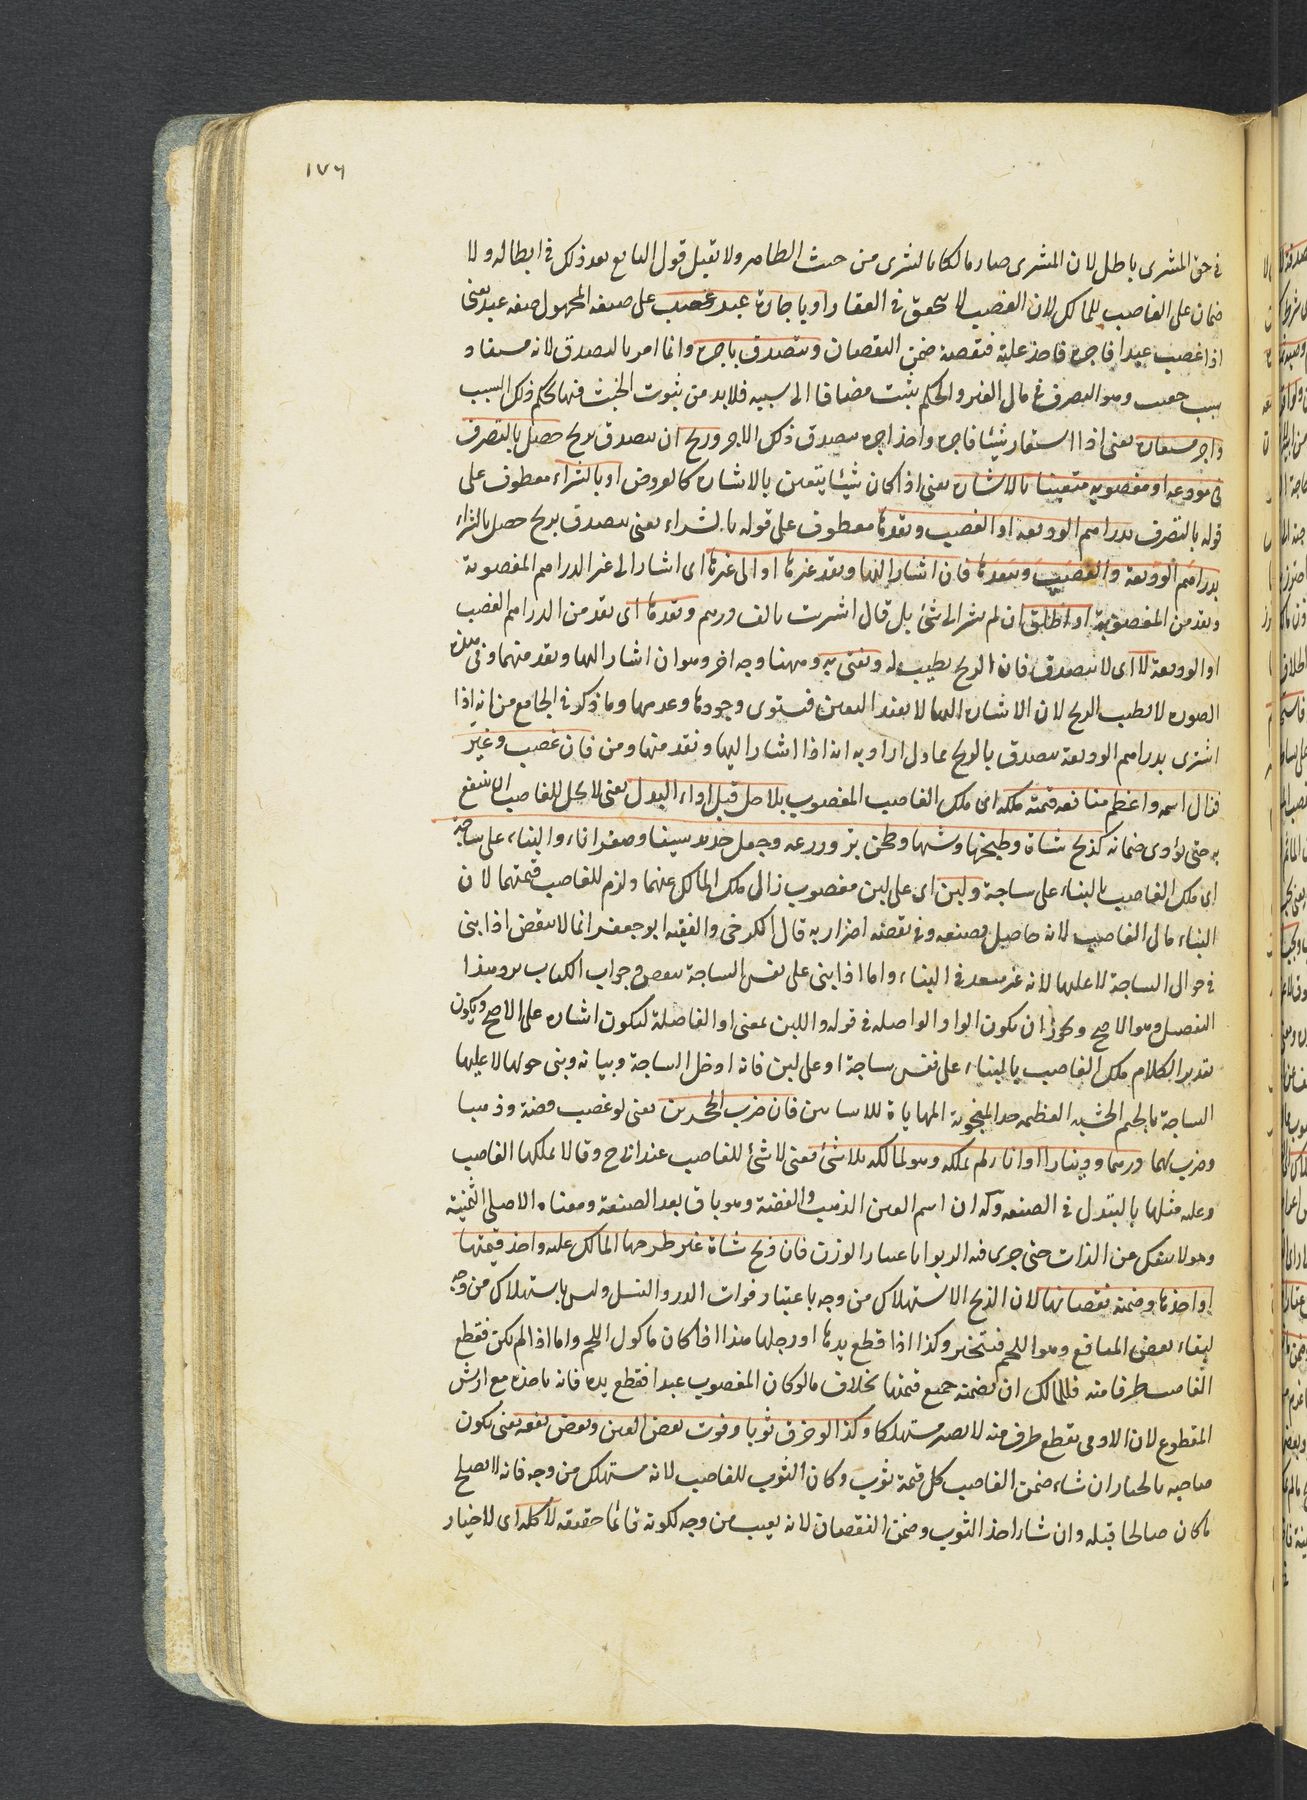 ١٧٦
في حق المشترى باطل لان المشترى صار مالكا بالشرى من حيث الظاهر ولا يقبل قول البايع بعد ذلك في ابطاله ولا
ضمان على الغاصب للمالك لان الغصب لا يتحقق في العقار او باجارة عبد غصب على صيغة المجهول صفة عبد يعنى
اذا غصب عبدا فاجره فاخذ غلته فنقصته ضمن النقصان ويتصدق باجره وانما امر بالتصدق لانه مستفاد
بسبب خبيث وهو التصرف في مال الغير والحكم يثبت مضافا الى سببه فلا بد من ثبوت الخبث فيها بحكم ذلك السبب
واجر مستعاره يعنى اذا استعار شيئا فاجره واخذ اجره يتصدق ذلك الاجر وربح ان يتصدق بربح حصل بالتصرف
في مودعه او مغصوبه متعينا بالاشاره يعنى اذا كان شيئا يتعين بالاشارة كالعروض او بالشراء معطوف على
قوله بالتصرف بدراهم الوديعة او الغصب ونقدها معطوف على قوله بالشراء يعنى يتصدق بربح حصل بالشراء
بدراهم الوديعة والغصب ونقدها فان اشار اليها ونقد غيرها او الى غيرها اى اشار الى غير الدراهم المغصوبة
ونقد من المغصوبة او اطلق ان لم يشر الى شئ بل قال اشتريت بالف درهم ونقدها اى نقد من الدراهم الغصب
او الوديعة لا اى لا يتصدق فان الربح يطيب له وبه يفتى وههنا وجه اخر وهو ان اشار اليها ونقد منها وفي هذه
الصوره لا يطيب الربح لان الاشارة اليها لا يفيد التعين فيستوى وجودها وعدمها وما ذكر في الجامع من انه اذا
اشترى بدراهم الوديعة يتصدق بالربح عاول اراد به انه اذا اشار اليها ونقد منها ومن فان غصب وغير
فزال اسمه واعظم منافعه ضمنه ملكه اى ملك الغاصب المغصوب بلا حل قبل اداء البدل يعنى لا يحل للغاصب الانتفاع
به حتى يؤدى ضمانه كذبح شاة وطبخها وشيها وطحن بر وزرعه وجعل حديد سيفا وصفر اناء والبناء على ساجة
اى ملك الغاصب بالبناء على ساجة ولبن اى على لبن مغصوب زال ملك المالك عنهما ولزم للغاصب قيمتهما لان
البناء مال الغاصب لانه حاصل بصنعه وفي نقضه اضرار به قال الكرخى والفقيه ابو جعفر انما لا ينقض اذا بنى
في حوالى الساجة لا عليها لانه غير متعد في البناء واما اذا بنى على نفس الساجة ينقض وجواب الكتاب يرد هذا
التفصيل وهو الاصح ويجوز ان يكون الواو الواصله في قوله واللبن بمعنى او الفاصلة ليكون اشاره على الاصح ويكون
تقدير الكلام ملك الغاصب بالبناء على نفس ساجة او على لبن فانه ادخل الساجة وبيانه وبنى حولها لا عليها
الساجة بالجيم الخشبه العظيمه جدا المنجوبة المهيأة للاساس فان ضرب الحجرين يعنى لو غصب فضة وذهبا
وضرب لهما درهما ودينارا او اناء لم يملكه وهو لمالكه بلا شئ يعنى لا شئ للغاصب عند ابى ح وقالا يملكها الغاصب
وعليه مثلها بالتبدل في الصنعه وله ان اسم العين الذهب والفضة وهو باق بعد الصنعة ومعناه الاصلى الثمنية
وهو لا ينفك عن الذات حتى جرى فيه الربوا باعتبار الوزن فان ذبح شاة غير طرحها المالك عليه واخذ قيمتها
او اخذها وضمنه نقصانها لان الذبح الاستهلاك من وجه باعتبار فوات الدر والنسل وليس باستهلاك من وجه
لبقاء بعض المنافع وهو اللحم فتخير وكذا اذا قطع يدها او رجلها هذا اذا كان ماكول اللحم واما اذا لم يكن فقطع
الغاصب طرفا منه فللمالك ان يضمنه جميع قيمتها بخلاف ما لو كان المغصوب عبدا فقطع يده فانه ياخذه مع ارش
المقطوع لان الادمى بقطع طرف منه لا يصير مستهلكا وكذا لو خرق ثوبا وفوت بعض العين وبعض نفعه يعنى يكون
صاحبه بالخيار ان شاء ضمن الغاصب كل قيمة ثوب وكان الثوب للغاصب لانه مستهلك من وجه فانه لا يصلح
ما كان صالحا قبله وان شاء اخذ الثوب وضمن النقصان لانه يعيب من وجه لكونه قائما حقيقه لا كله اى لا خيار